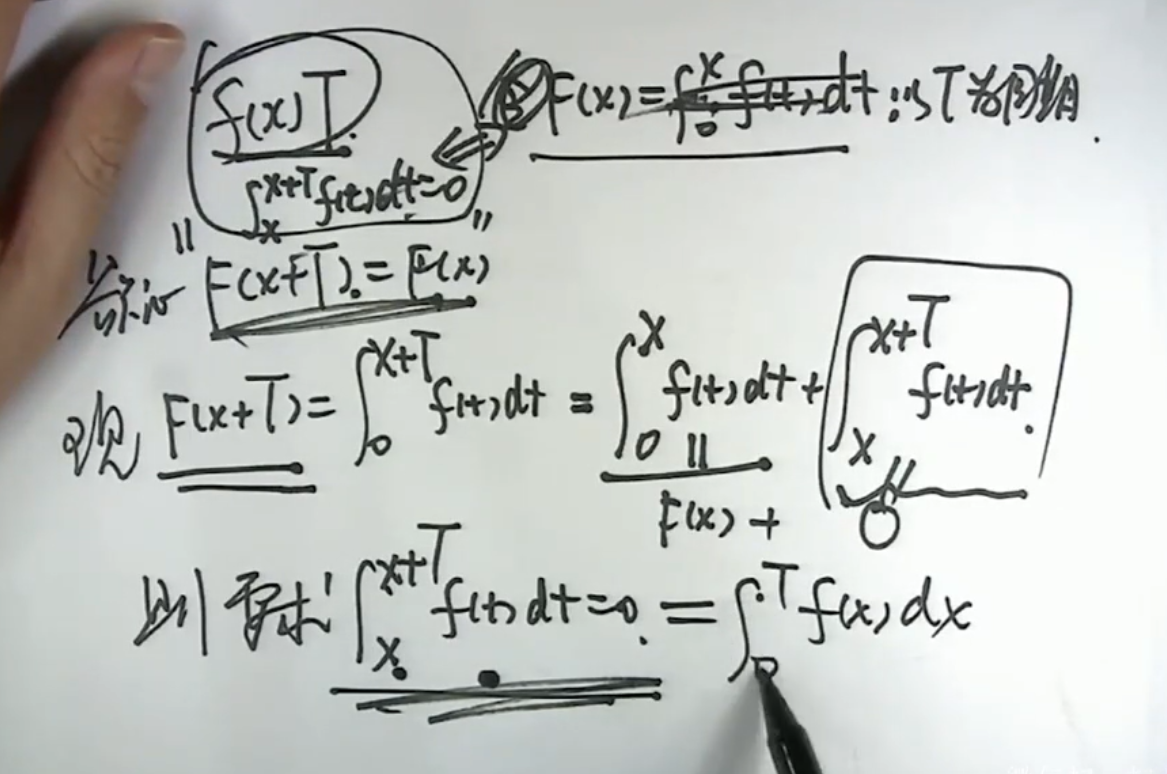 f(x) T. F(x) = ∫₀ˣ f(t)dt 以T为周期.
∫ₓˣ⁺ᵀ f(t)dt = 0
" F(x+T) = F(x) "
观 F(x+T) = ∫₀ˣ⁺ᵀ f(t)dt = ∫₀ˣ f(t)dt + ∫ₓˣ⁺ᵀ f(t)dt.
F(x) + 0
则要求 ∫ₓˣ⁺ᵀ f(t)dt = 0. = ∫₀ᵀ f(x)dx